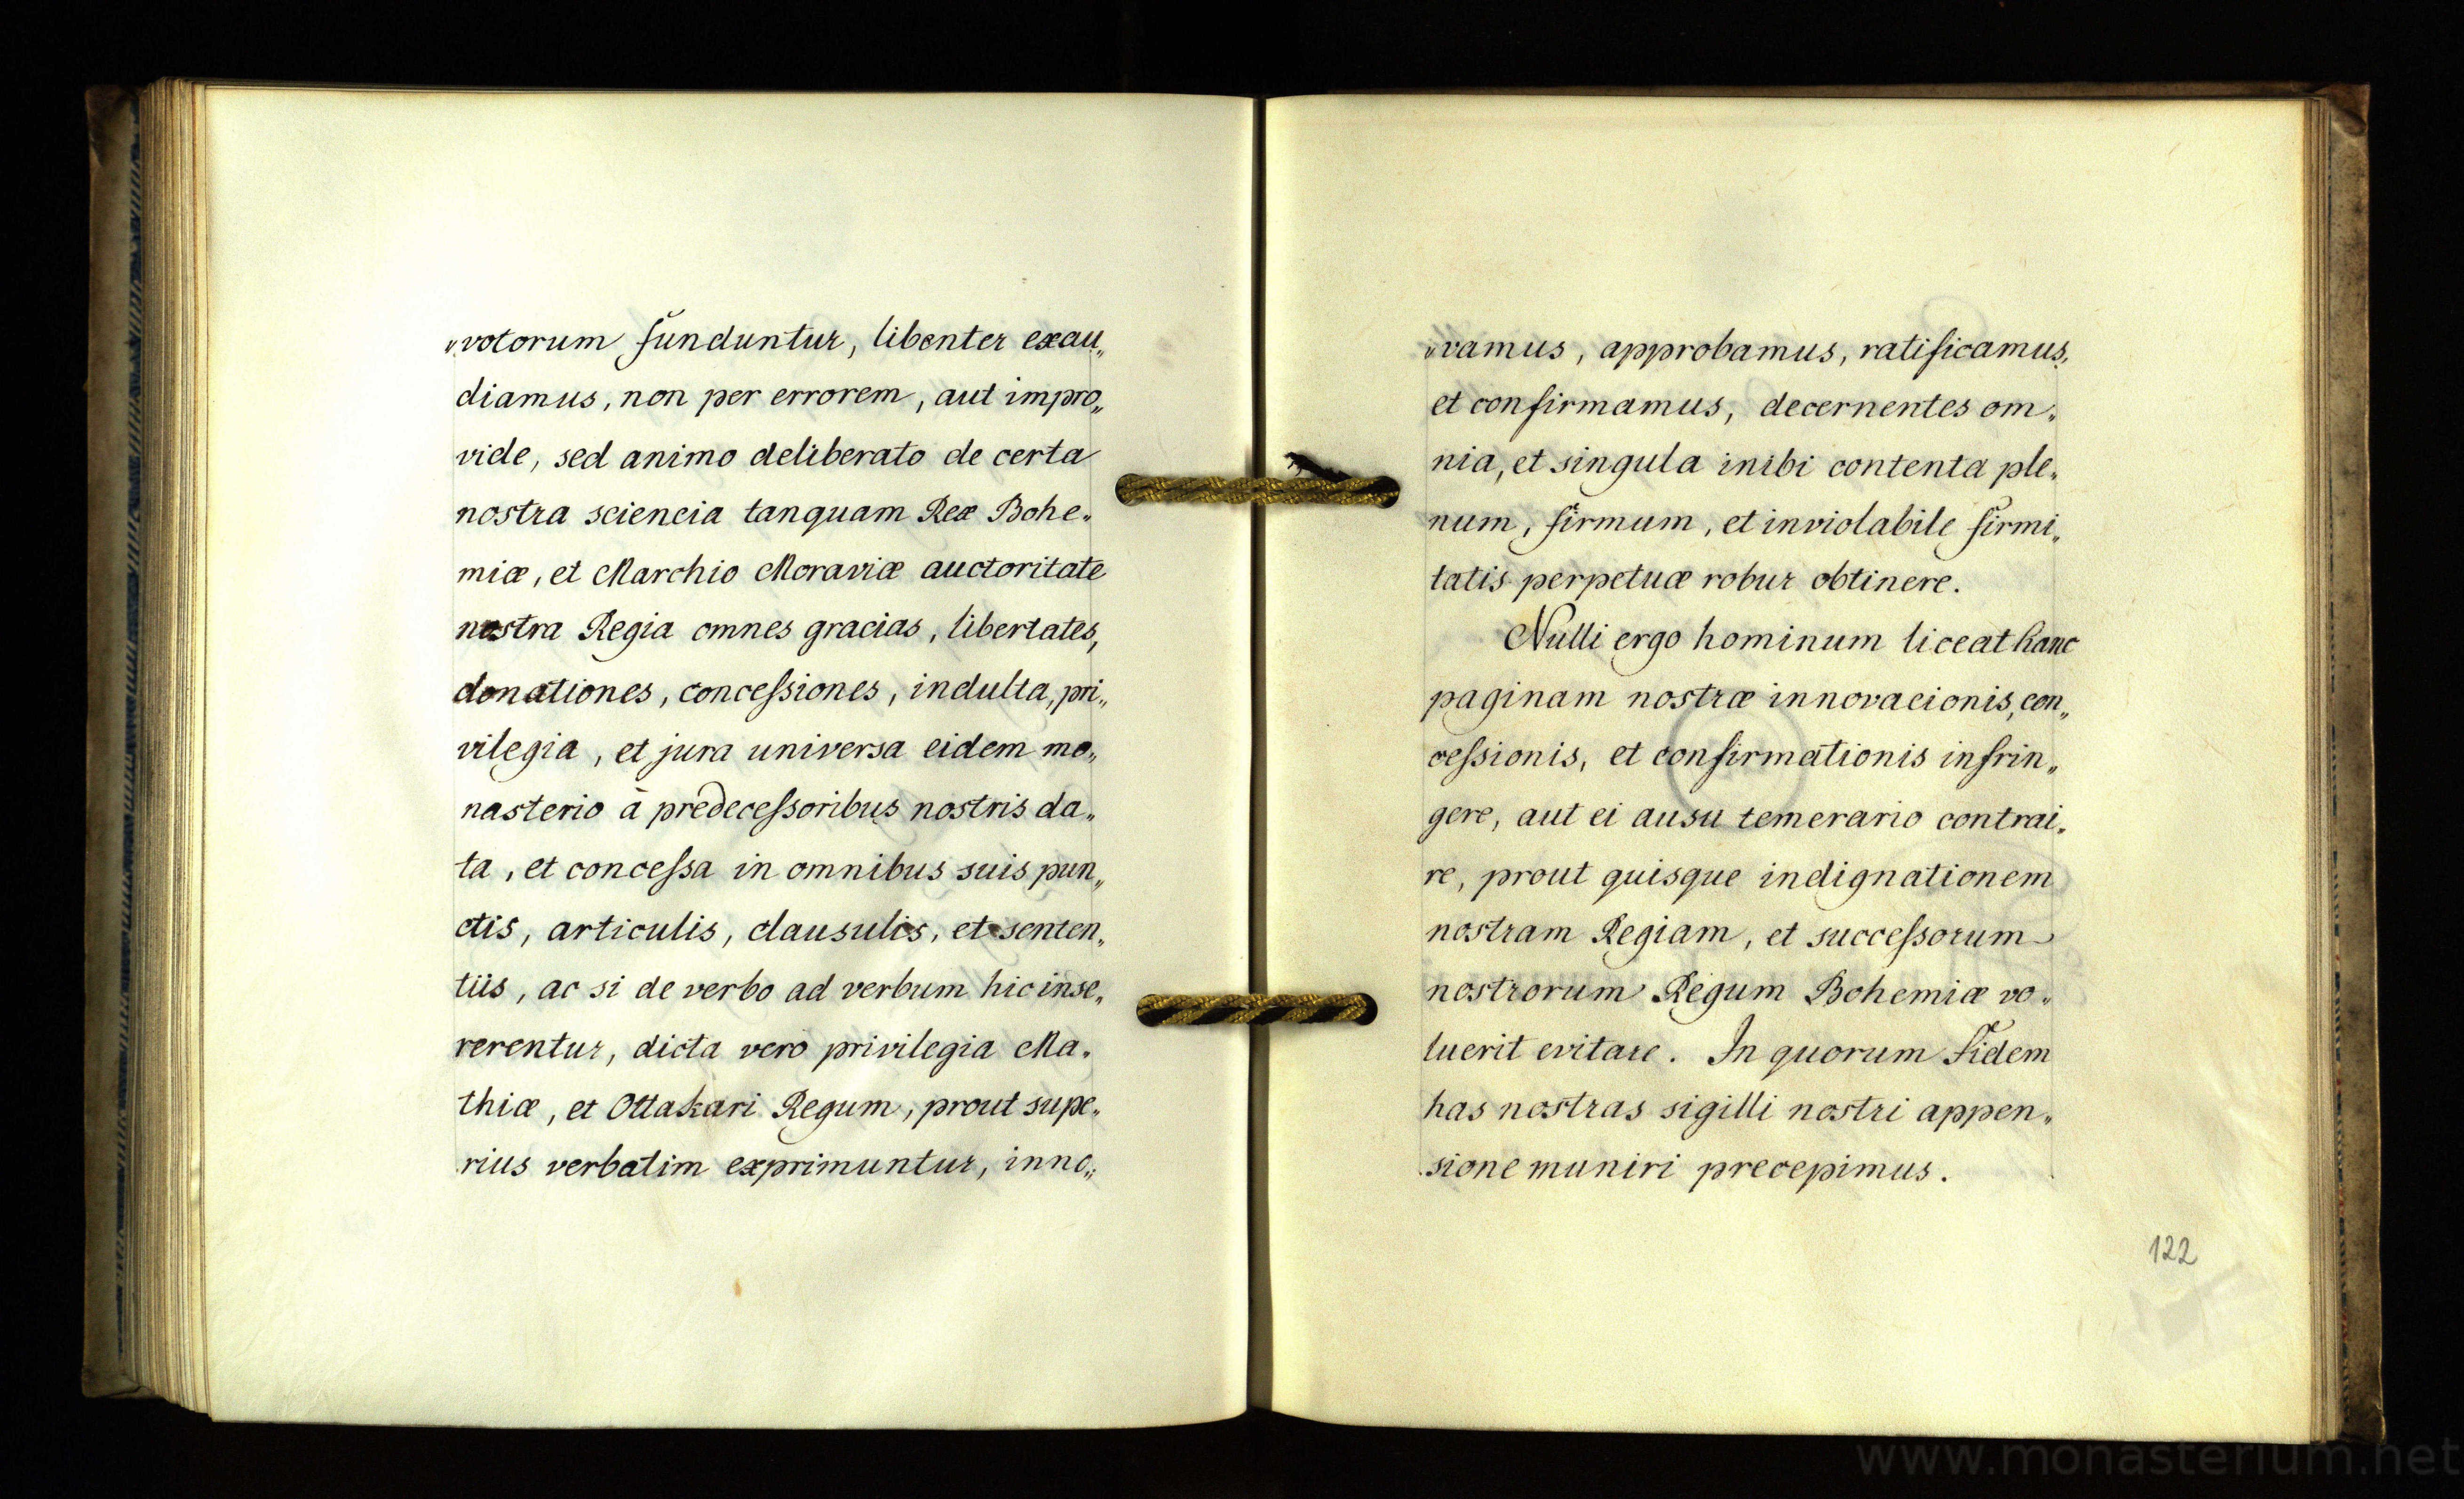 „votorum funduntur, libenter exau„
diamus, non per errorem, aut impro„
vide, sed animo deliberato de certa
nostra sciencia tanquam Rex Bohe„
miæ, et Marchio Moraviæ auctoritate
nostra Regia omnes gracias, libertates,
donationes, conceſsiones, indulta, pri„
vilegia, et jura universa eidem mo„
nasterio à predeceſsoribus nostris da„
ta, et conceſsa in omnibus suis pun„
ctis, articulis, clausulis, et senten„
tiis, ac si de verbo ad verbum hic inse„
rerentur, dicta vero privilegia Ma„
thiæ, et Ottakari Regum, prout supe„
rius verbatim exprimuntur, inno„
„vamus, approbamus, ratificamus,
et confirmamus, decernentes om„
nia, et singula inibi contenta ple„
num, firmum, et inviolabile firmi„
tatis perpetuæ robur obtinere.
Nulli ergo hominum liceat hanc
paginam nostræ innovacionis, con„
ceſsionis, et confirmationis infrin„
gere, aut ei ausu temerario contrai„
re, prout quisque indignationem
nostram Regiam, et succeſsorum
nostrorum Regum Bohemiæ vo„
luerit evitare. In quorum Fidem
has nostras sigilli nostri appen„
sione muniri precepimus.
122
www.monasterium.net